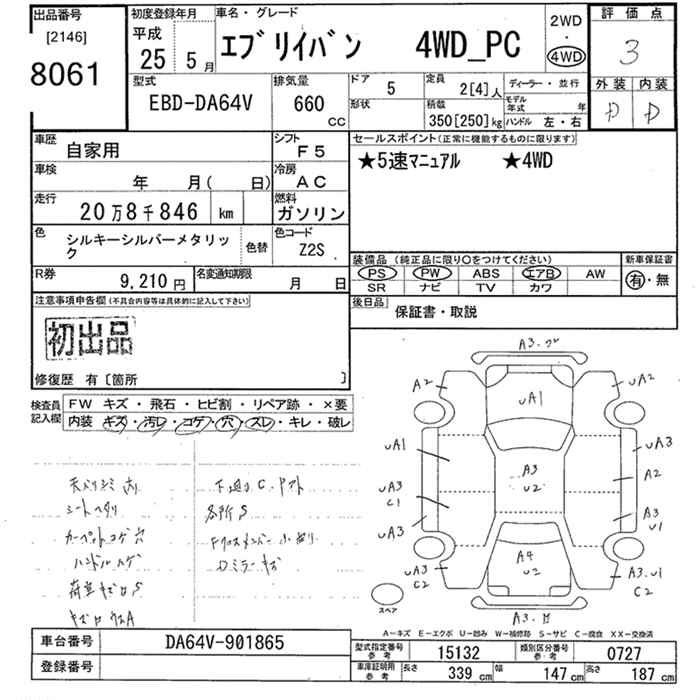 出品番号
[2146]
8061
初度登録年月
平成
25 5月
車名・グレード
エブリイバン 4WD_PC
2WD
・
4WD
評価点
3
外装 内装
D D
型式
EBD-DA64V
排気量
660
CC
ドア
5
定員
2[4]人
ディーラー・並行
形状
積載
350[250]kg
モデル年式 年
ハンドル 左・右
車歴
自家用
シフト
F5
車検
年 月( 日)
冷房
AC
走行
20万8千846 km
燃料
ガソリン
色
シルキーシルバーメタリック
色替
色コード
Z2S
R券
9,210円
名変通知期限
月 日
セールスポイント(正常に機能するものに限ります)
★5速マニュアル ★4WD
装備品(純正品に限り○をつけてください)
PS PW ABS エアB AW
SR ナビ TV カワ
新車保証書
有・無
後日品
保証書・取説
注意事項申告欄(不具合内容等は具体的に記入して下さい)
初出品
修復歴 有〔箇所 〕
検査員記入欄
FW キズ・飛石・ヒビ割・リペア跡・×要
内装 キズ・汚レ・コゲ・穴・スレ・キレ・破レ
シートヘタリ
カーペットコゲ穴
ハンドルハゲ
各所S
Dミラーキズ
A2
UA1
UA2
UA1
UA3
A3
U2
A2
UA3
C1
UA3
A3
U1
A4
U2
UA3
C2
A3.U1
C2
スペア
A-キズ E-エクボ U-凹み W-補修跡 S-サビ C-腐食 XX-交換済
車台番号
DA64V-901865
登録番号
型式指定番号
参考
15132
類別区分番号
参考
0727
車庫証明用
参考
長さ
339 cm
幅
147 cm
高さ
187 cm